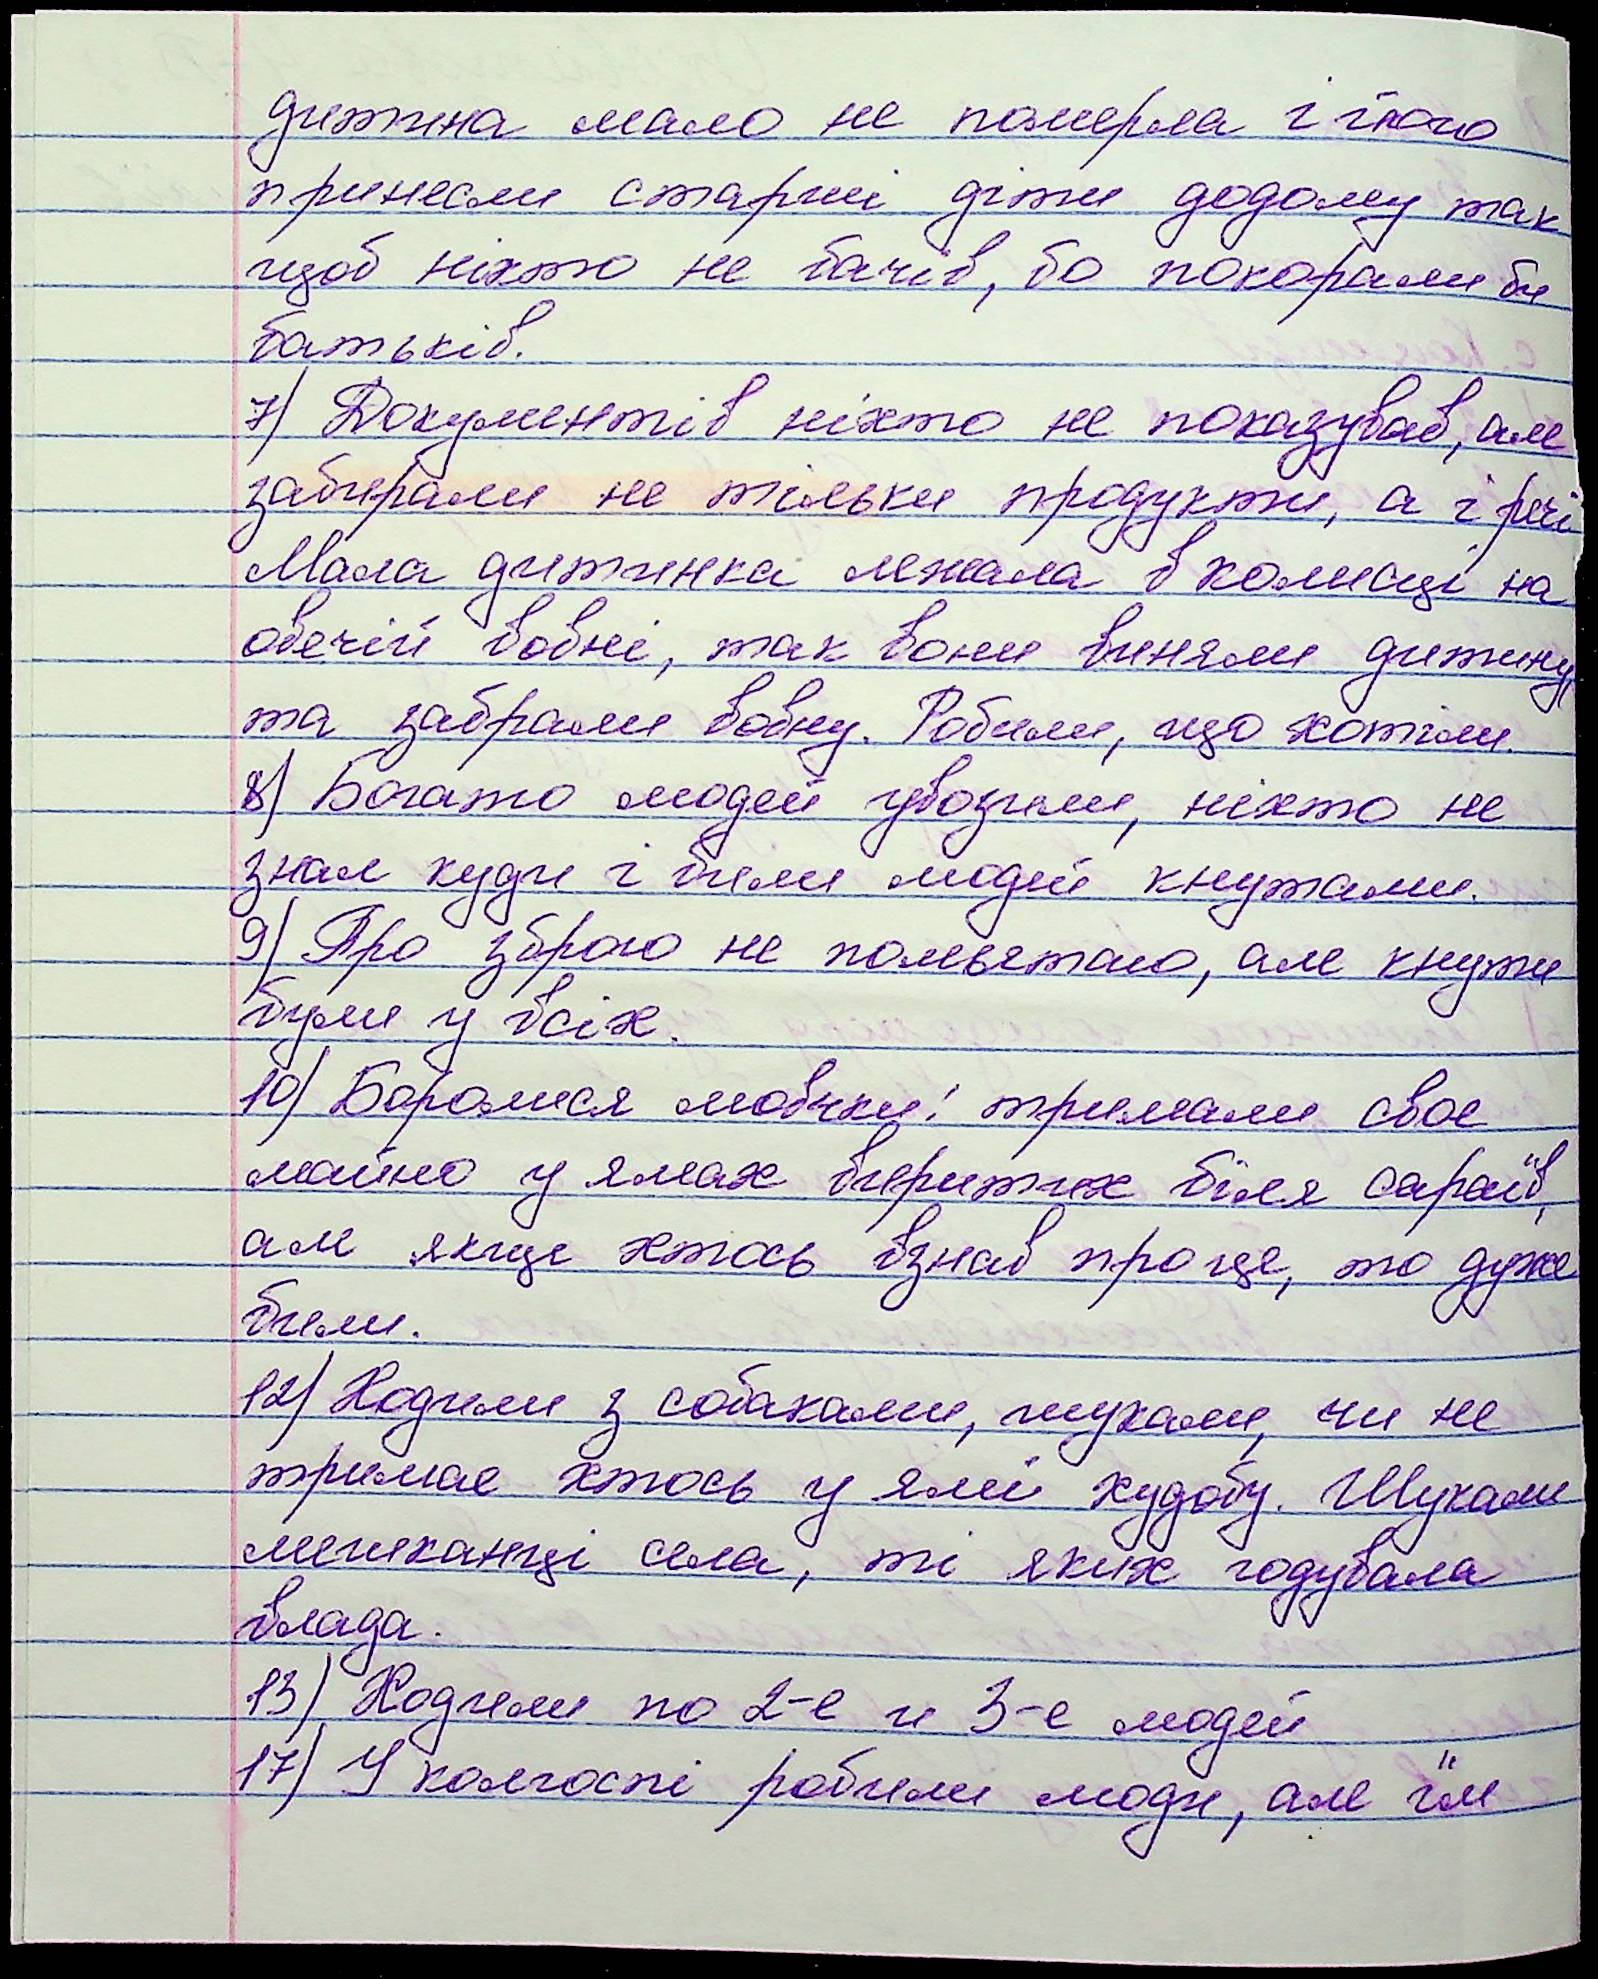 дитина мало не померла і його
принесли старші діти додому так
щоб ніхто не бачів, бо покорали би
батьків.
7) Документів ніхто не показував, але
забирали не тільки продукти, а і речі
Мала дитинка лежала в колисці на
овечій вовні, так вони виняли дитину,
та забрали вовну. Робили, що хотіли.
8) Богато людей увозили, ніхто не
знал куди і били людей кнутами.
9) Про зброю не помьятаю, але кнути
були у всіх.
10) Боролися мовчки: тримали своє
майно у ямах виритих біля сараїв,
але якще хтось взнав про це, то дуже
били.
12) Ходили з собаками, шукали, чи не
тримає хтось у ямі худобу. Шукали
мешканці села, ті яких годувала
влада.
13) Ходили по 2-е и 3-е людей
17) У колгоспі робили люди, але їм